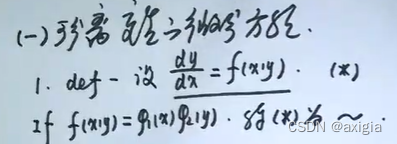 (一) 可分离变量的微分方程.
1. def - 设 dy/dx = f(x,y). (*)
If f(x,y) = φ₁(x)φ₂(y). 称(*)为 ~.
CSDN @axigia